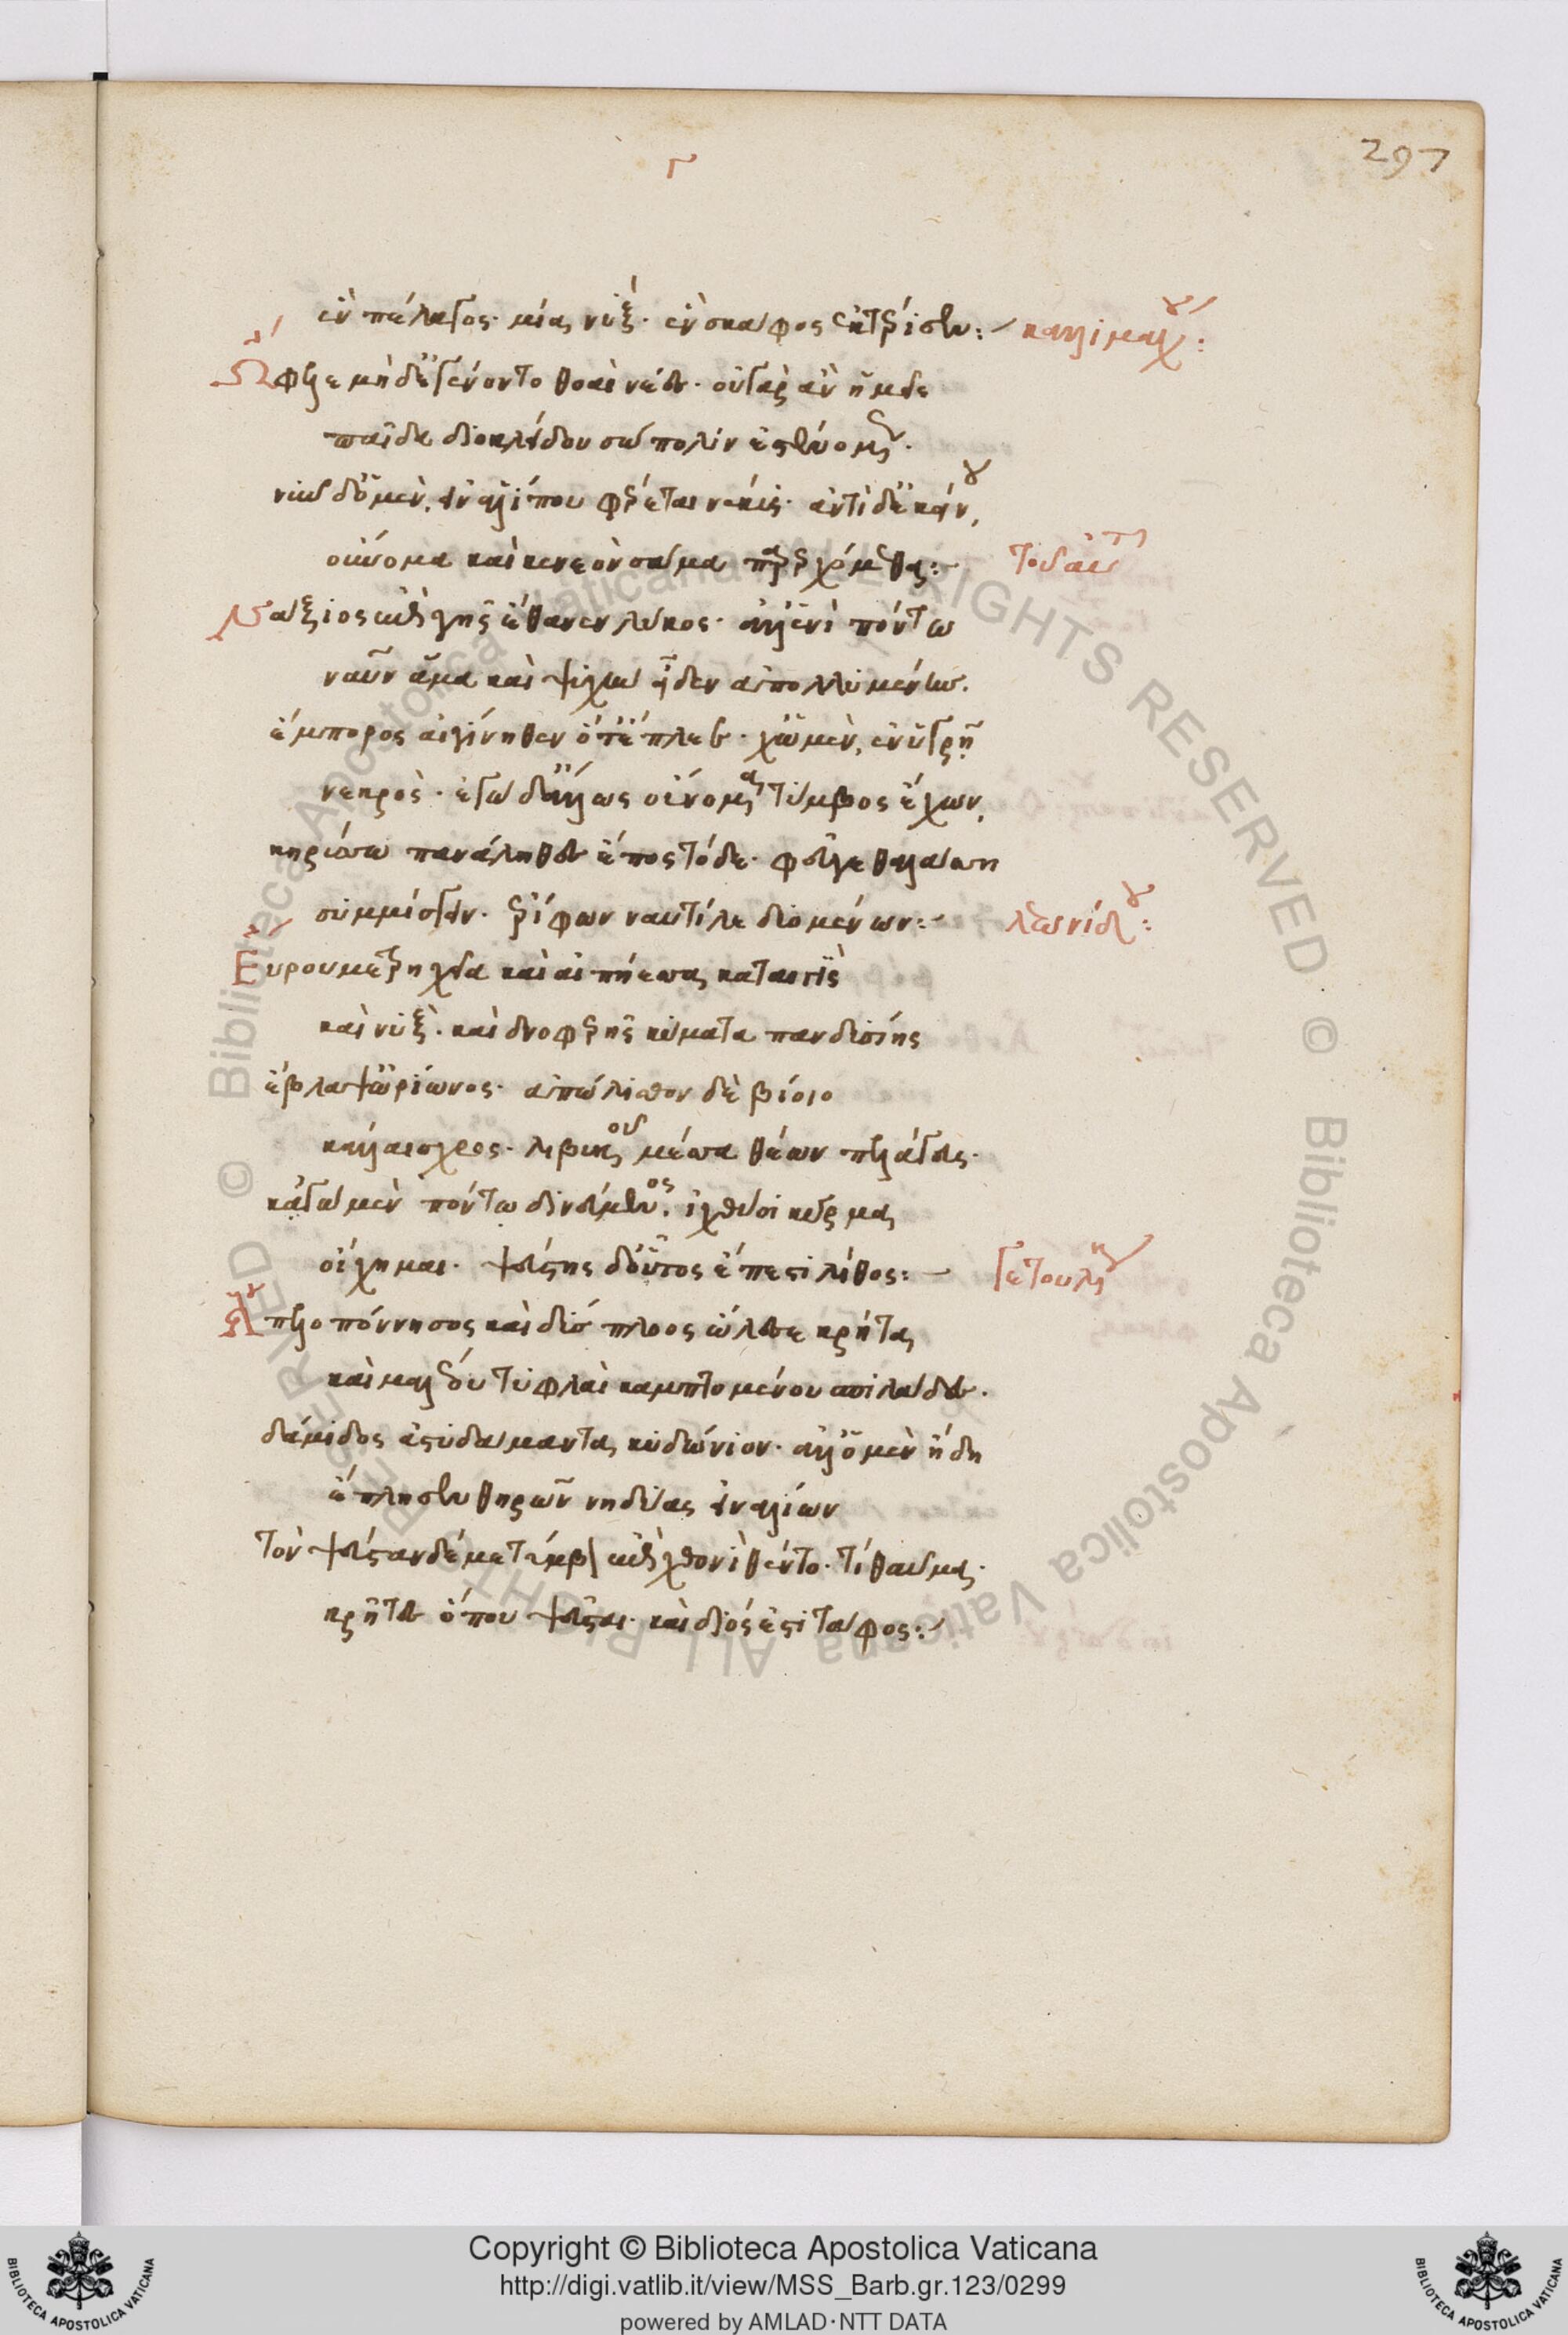 297
Γ
ἓν πέλαγος· μία νύξ· ἓν σκάφος ἐκτέρισεν:
καλλιμάχου:
Ὤφελε μὴ δ' ἐγένοντο θοαὶ νέες· οὐ γὰρ ἂν ἡμεῖς
παῖδα διοκλείδου σώπολιν ἐστένομεν·
νῦν δ' ὁ μὲν, εἰν ἁλί που φέρεται νέκυς· ἀντὶ δ' ἐκείνου,
οὔνομα καὶ κενεὸν σᾶμα παρερχόμεθα:
τοῦ αὐτοῦ
Νάξιος οὐκ ἐπὶ γῆς ἔθανεν λύκος· ἀλλ' ἐνὶ πόντω
ναῦν ἅμα καὶ ψυχὴν εἶδεν ἀπολλυμένην.
ἔμπορος αἰγίνηθεν ὅτ' ἔπλει· χ' ὠ μὲν, ἐν ὑγρῇ
νεκρὸς· ἐγὼ δ' ἄλλως οὔνομα τύμβος ἔχων,
κηρύσσω παναληθὲς ἔπος τόδε· φεῦγε θαλάσση
συμμίσγειν· ἐρίφων ναυτίλε δυομένων:
λεωνίδου:
Εὔρου με τρηχεῖα καὶ αἰπήεσσα καταιγὶς
καὶ νὺξ· καὶ δνοφερῆς κύματα πανδυσίης
ἔβλαψ' ὠρίωνος· ἀπώλισθον δὲ βίοιο
κάλαισχρος· λιβυκοῦ μέσσα θέων πελάγευς·
κἀγὼ μὲν πόντω δινεύμενος, ἰχθύσι κύρμα
οἴχημαι· ψεύστης δ' οὗτος ἔπεστι λίθος:
Γετουλικοῦ
Ἁ πελοπόννησος καὶ δύσπλοος ὤλεσε κρήτα
καὶ μαλέου τυφλαὶ καμπτομένου σπιλάδες·
δάμιδος ἀστυδάμαντα κυδώνιον· ἀλλ' ὁ μὲν ἤδη
ἔπλησεν θηρῶν νηδύας εἰναλίων
τὸν ψεύσταν δέ με τύμβον ἐπὶ χθονὶ θέντο· τί θαῦμα·
κρῆτες ὅπου ψεῦσται· καὶ διός ἐστι τάφος:
Copyright © Biblioteca Apostolica Vaticana
http://digi.vatlib.it/view/MSS_Barb.gr.123/0299
powered by AMLAD·NTT DATA